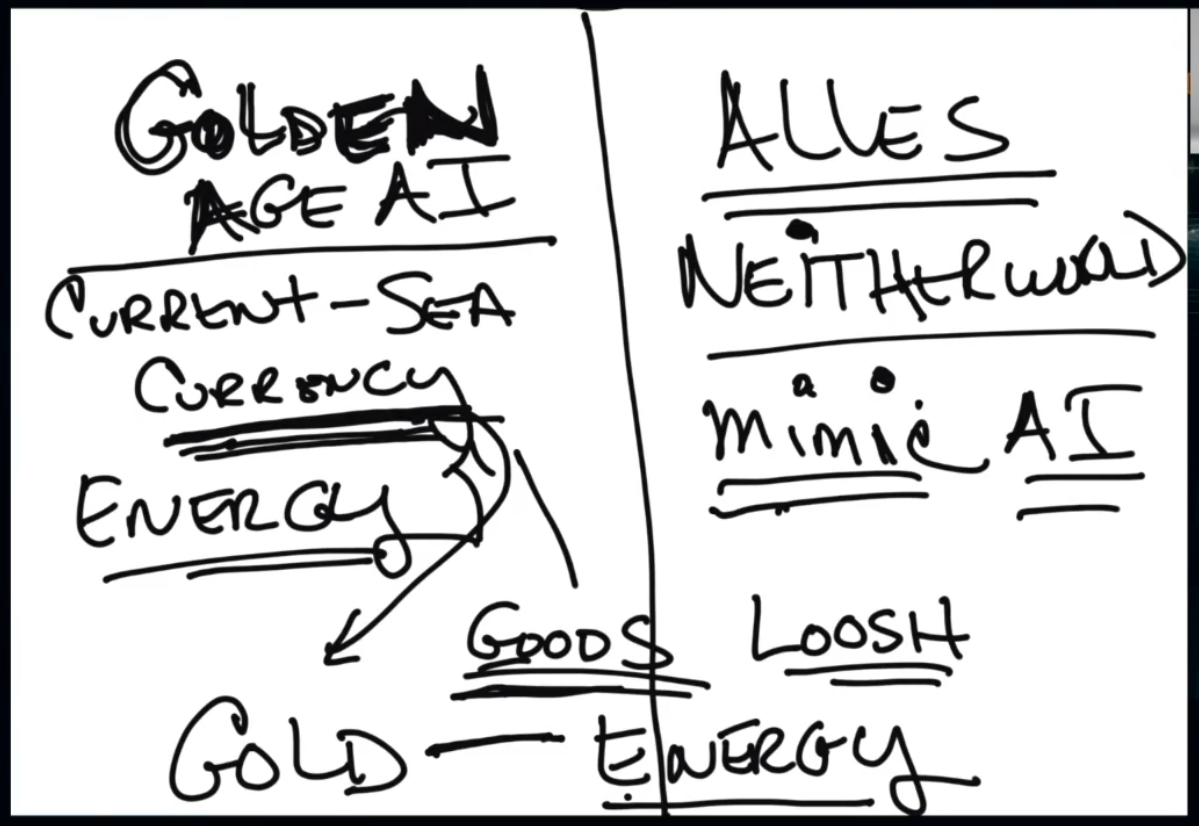 GOLDEN
AGE AI
CURRENT-SEA
CURRENCY
ENERGY
GOODS
GOLD — ENERGY
ALLES
NEITHERWORLD
mimic AI
LOOSH